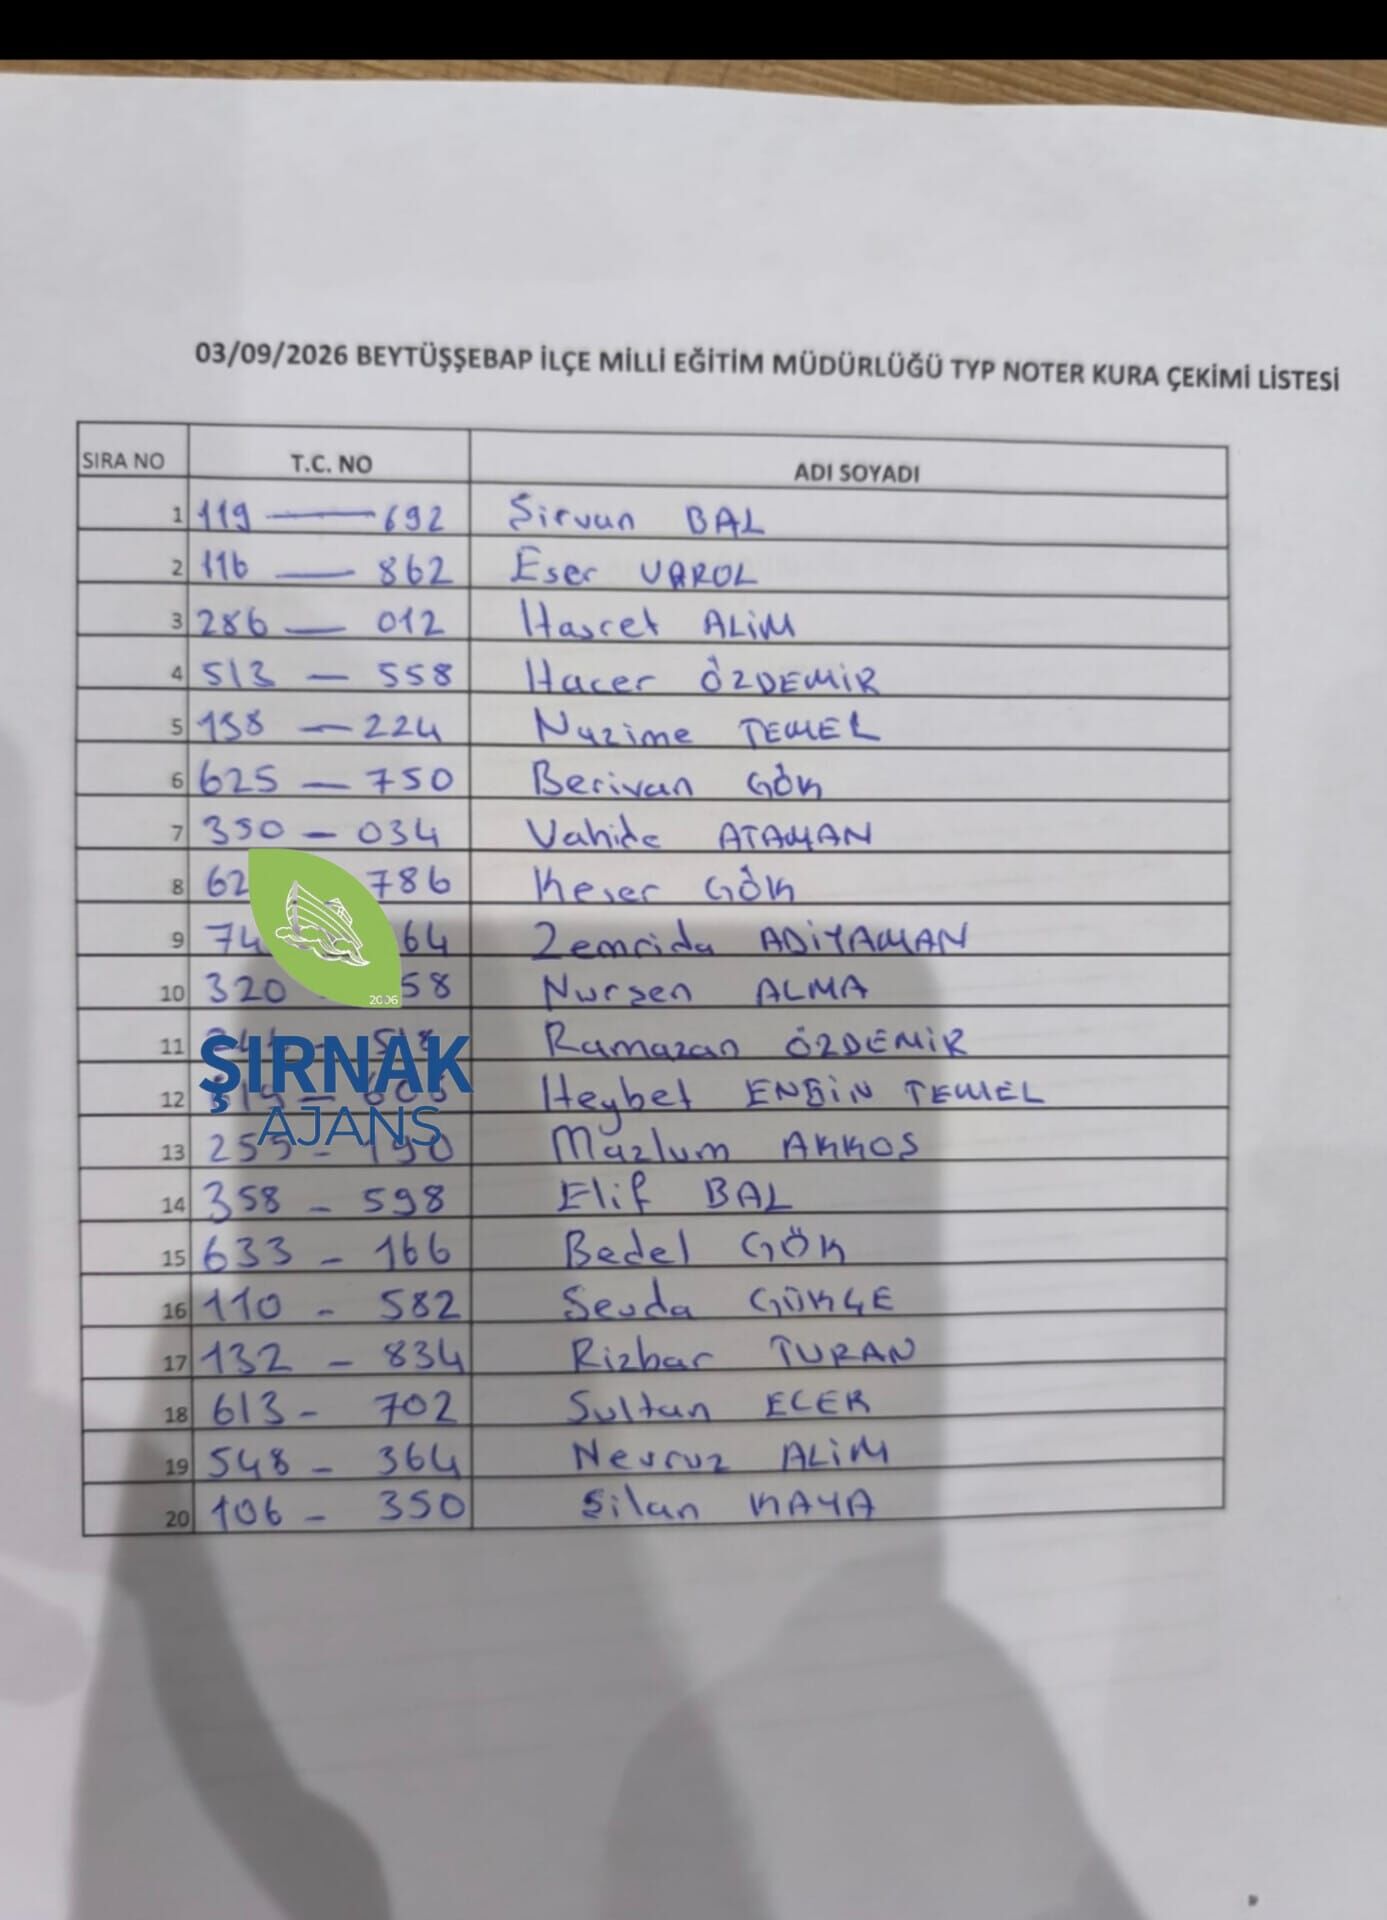 03/09/2026 BEYTÜŞŞEBAP İLÇE MİLLİ EĞİTİM MÜDÜRLÜĞÜ TYP NOTER KURA ÇEKİMİ LİSTESİ
SIRA NO T.C. NO ADI SOYADI
1 119 — 692 Şirvan BAL
2 116 — 862 Eser VAROL
3 286 — 012 Hasret ALİM
4 513 — 558 Hacer ÖZDEMİR
5 158 — 224 Nazime TEMEL
6 625 — 750 Berivan GÖK
7 350 — 034 Vahide ATAMAN
8 62 786 Keser GÖK
9 74 64 Zemrida ADİYAMAN
10 320 58 Nursen ALMA
11 Ramazan ÖZDEMİR
12 Heybet ENGİN TEMEL
13 255 - 190 Mazlum AKKOS
14 358 - 598 Elif BAL
15 633 - 166 Bedel GÖK
16 110 - 582 Sevda GÖKÇE
17 132 - 834 Rizbar TURAN
18 613 - 702 Sultan ECER
19 548 - 364 Nevruz ALİM
20 106 - 350 Şilan KAYA
2006
ŞIRNAK
AJANS